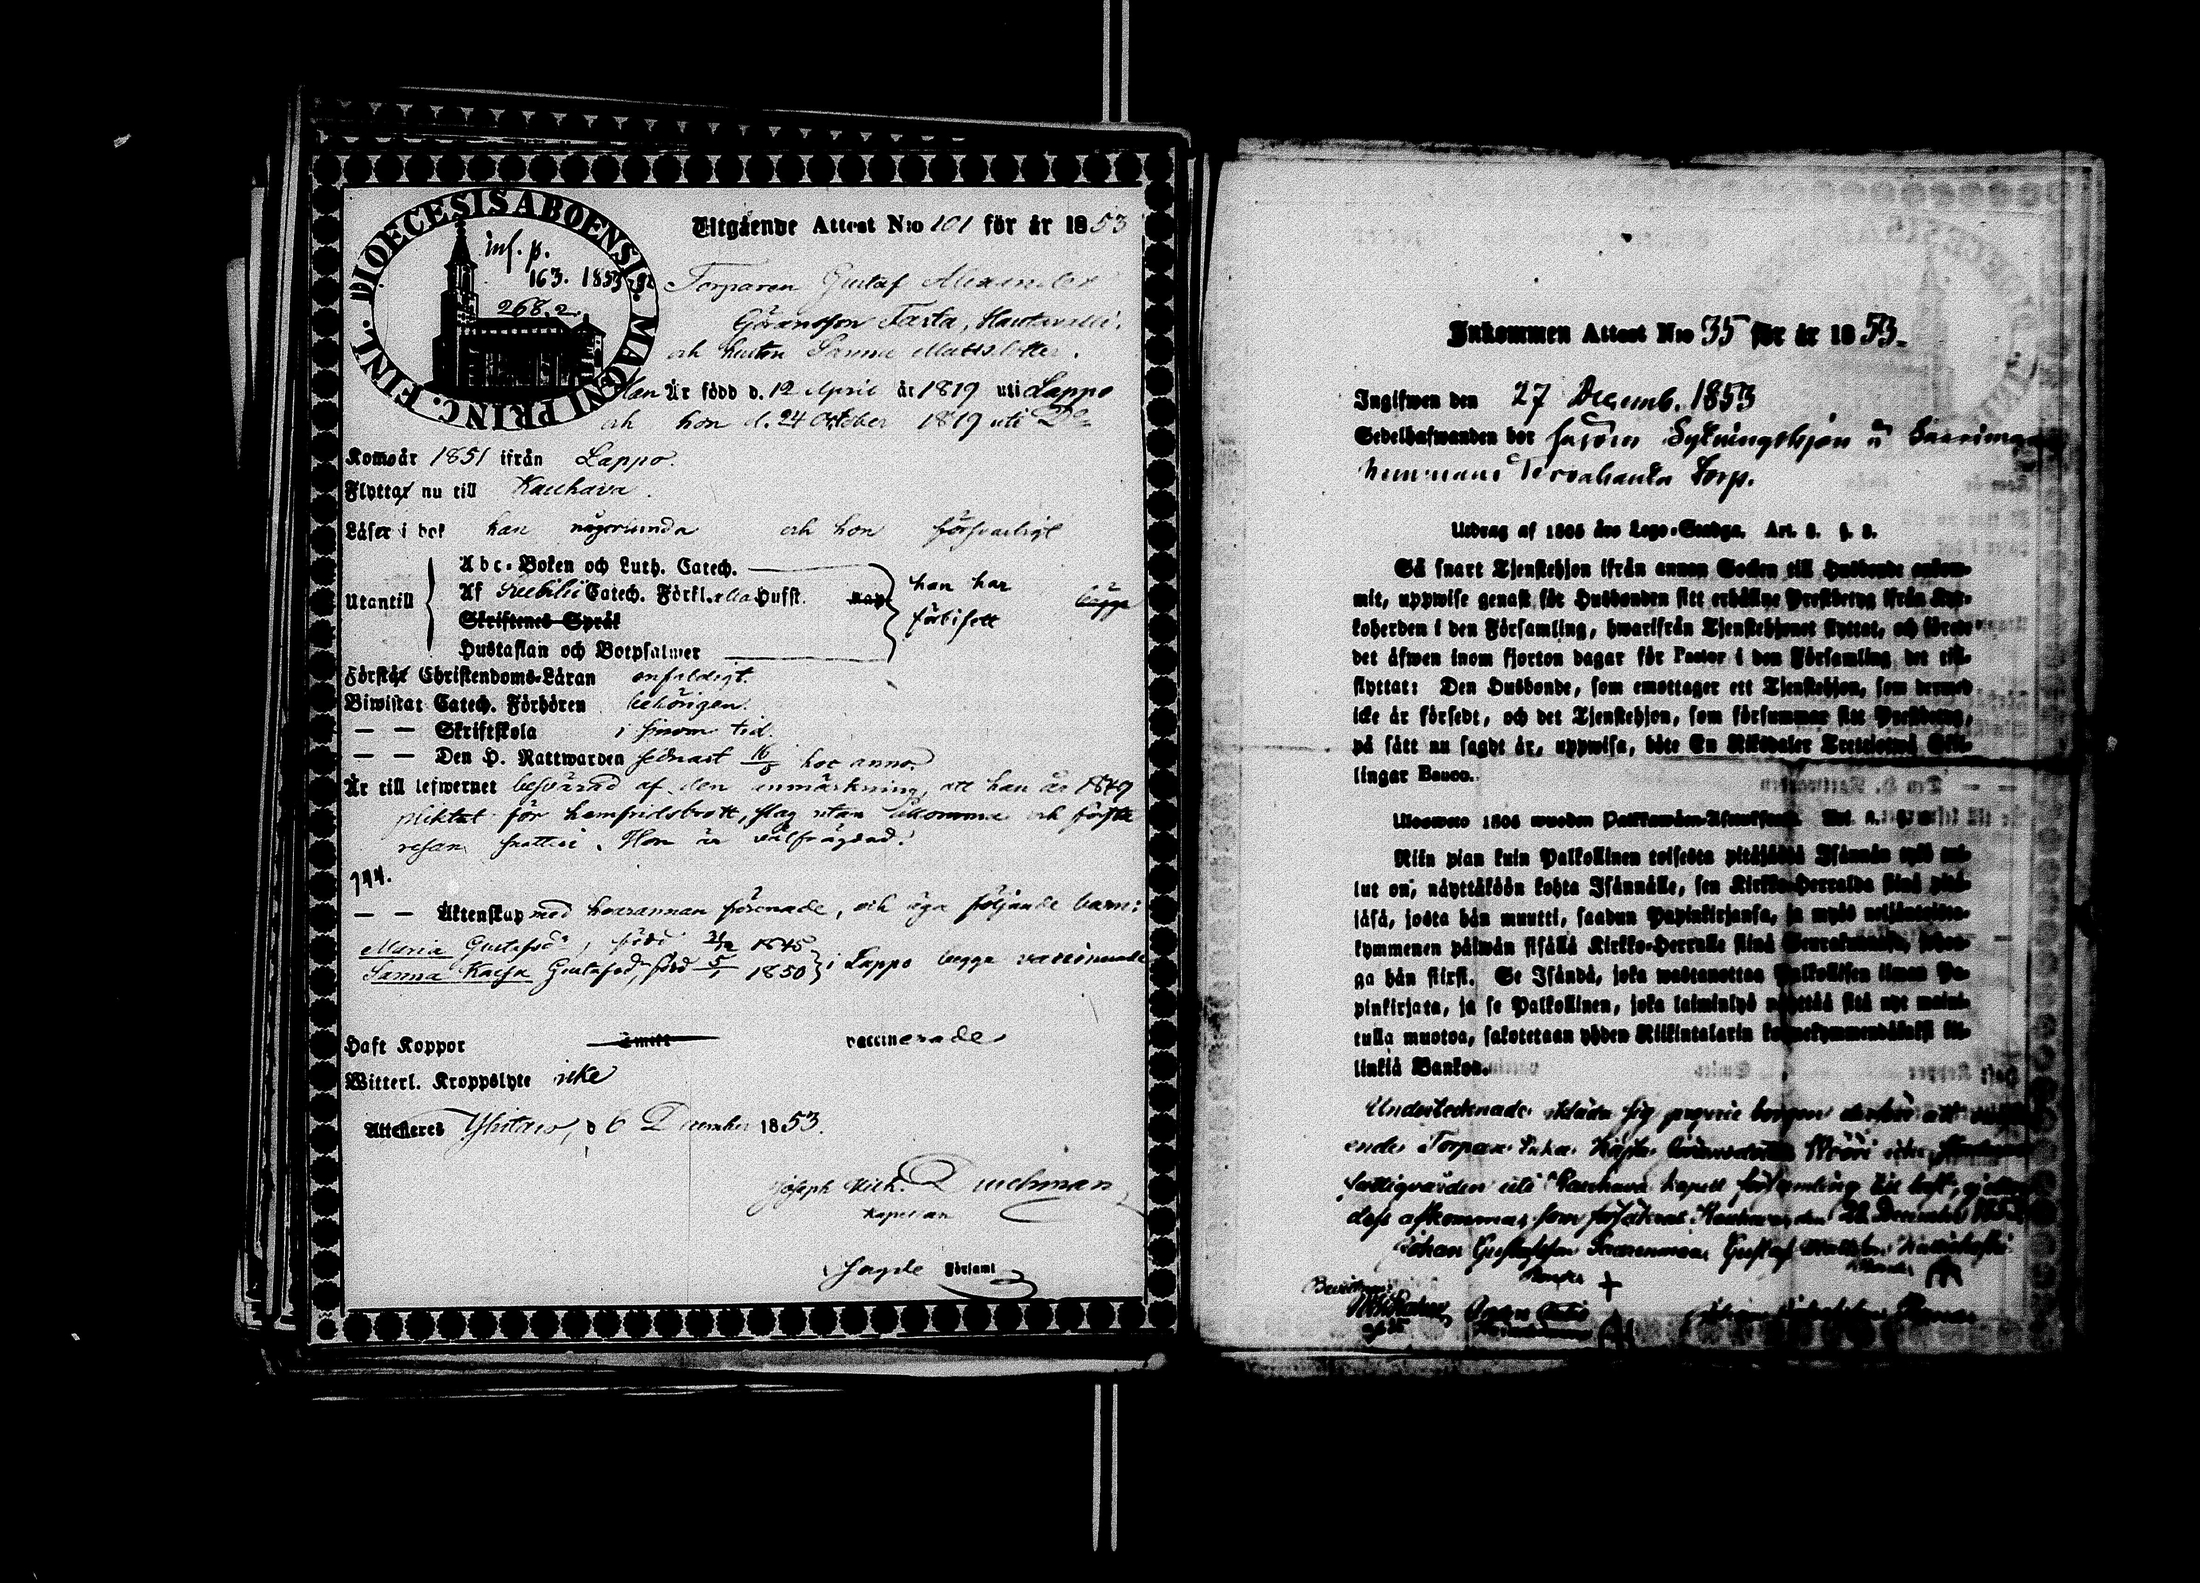 DIOECESIS ABOENSIS. MAGNI PRINC. FINL.
inf. p.
163. 1853
268.2.
Utgående Attest N:o 101 för år 1853
Torparen Gustaf Alexander
Göransson Tasta, Hautavelli.
och hustru Sanna Mattsdotter.
Han Är född d. 12 April år 1819 uti Lappo
och hon d. 24 October 1819 uti Do
Kom år 1851 ifrån Lappo.
Flyttat nu till Kauhava.
Läser i bok han någorlunda och hon försvarligt
Utantill
Abc-Boken och Luth. Catech.
Af Svebilii Catech. Förkl. Husst.
Skriftenes Språk
Hustaflan och Botpsalmer
han har
förbisett
bägge
Förstår Christendoms-Läran enfaldigt.
Biwistat Catech. Förhören behörigen.
— — Skriftskola i sinom tid.
— — Den H. Nattwarden sednast 16/5 hoc anno.
Är till lefwernet besvärad af den anmärkning, att han år 1849
pliktat för hemfridsbrott, slag utan åkomma och första
resan snatteri. Hon är välfrägdad.
744.
— — Äktenskap med hvarannan förenade, och äga följande barn:
Maria Gustafsdr, född 1845
Sanna Kaisa Gustafsdr, född 5/1 1850 i Lappo begge vaccinerade
Haft Koppor vaccinerade
Witterl. Kroppslyte icke
Attesteras Ylistaro, d 6 December 1853.
Joseph Mich. Duchman
Kapellan
i sagde Församl
Inkommen Attest N:o 35 för år 1853.
Ingifwen den 27 Decemb. 1853
Sedelhafwanden bor såsom Sytningshjon å Saarimaa
hemmans Torp.
Utdrag af 1805 års Lego-Stadga. Art. 2. §. 8.
Så snart Tjenstehjon ifrån annan Socken till Husbonde ankom-
mit, uppwise genast för Husbonden sitt erhållne Prestbetyg ifrån Kyr-
koherden i den Församling, hwarifrån Tjenstehjonet flyttat, och förete
det äfwen inom fjorton dagar för Pastor i den Församling det till-
flyttat: Den Husbonde, som emottager ett Tjenstehjon, som dermed
icke är försedt, och det Tjenstehjon, som försummar sitt Prestbetyg,
på sätt nu sagdt är, uppwisa, böte En Riksdaler Trettiotwå Skil-
lingar Banco.
Ulosweto 1805 wuoden Palkkawäen-Asetuksesta.
Niin pian kuin Palkollinen toisesta pitäjästä Isännän tygö tul-
lut on, näyttäköön kohta Isännälle, sen Kirkko-Herralda siinä pitä-
jäsä, josta hän muutti, saadun Papinkirjansa, ja myös neljäntoista-
kymmenen päiwän sisällä Kirkko-Herralle siinä Seurakunnasa, johon-
ga hän siirsi. Se Isändä, joka wastanottaa Palkollisen ilman Pa-
pinkirjata, ja se Palkollinen, joka laiminlyö näyttää sitä nyt maini-
tulla muotoa, sakotetaan yhden Riikintalarin kolmekymmendäkaksi kil-
linkiä Bankos.
Undertecknade ikläda sig proprie borgen derför att
ende Torpare icke
fattigvården uti Kauhava kapell församling till last,
dess afkomma, som försäkras. Kauhava, den 28 December 1853
Johan Gustafsson Saarenmaa Gustaf Mattsson
Bonde
Bevittna: